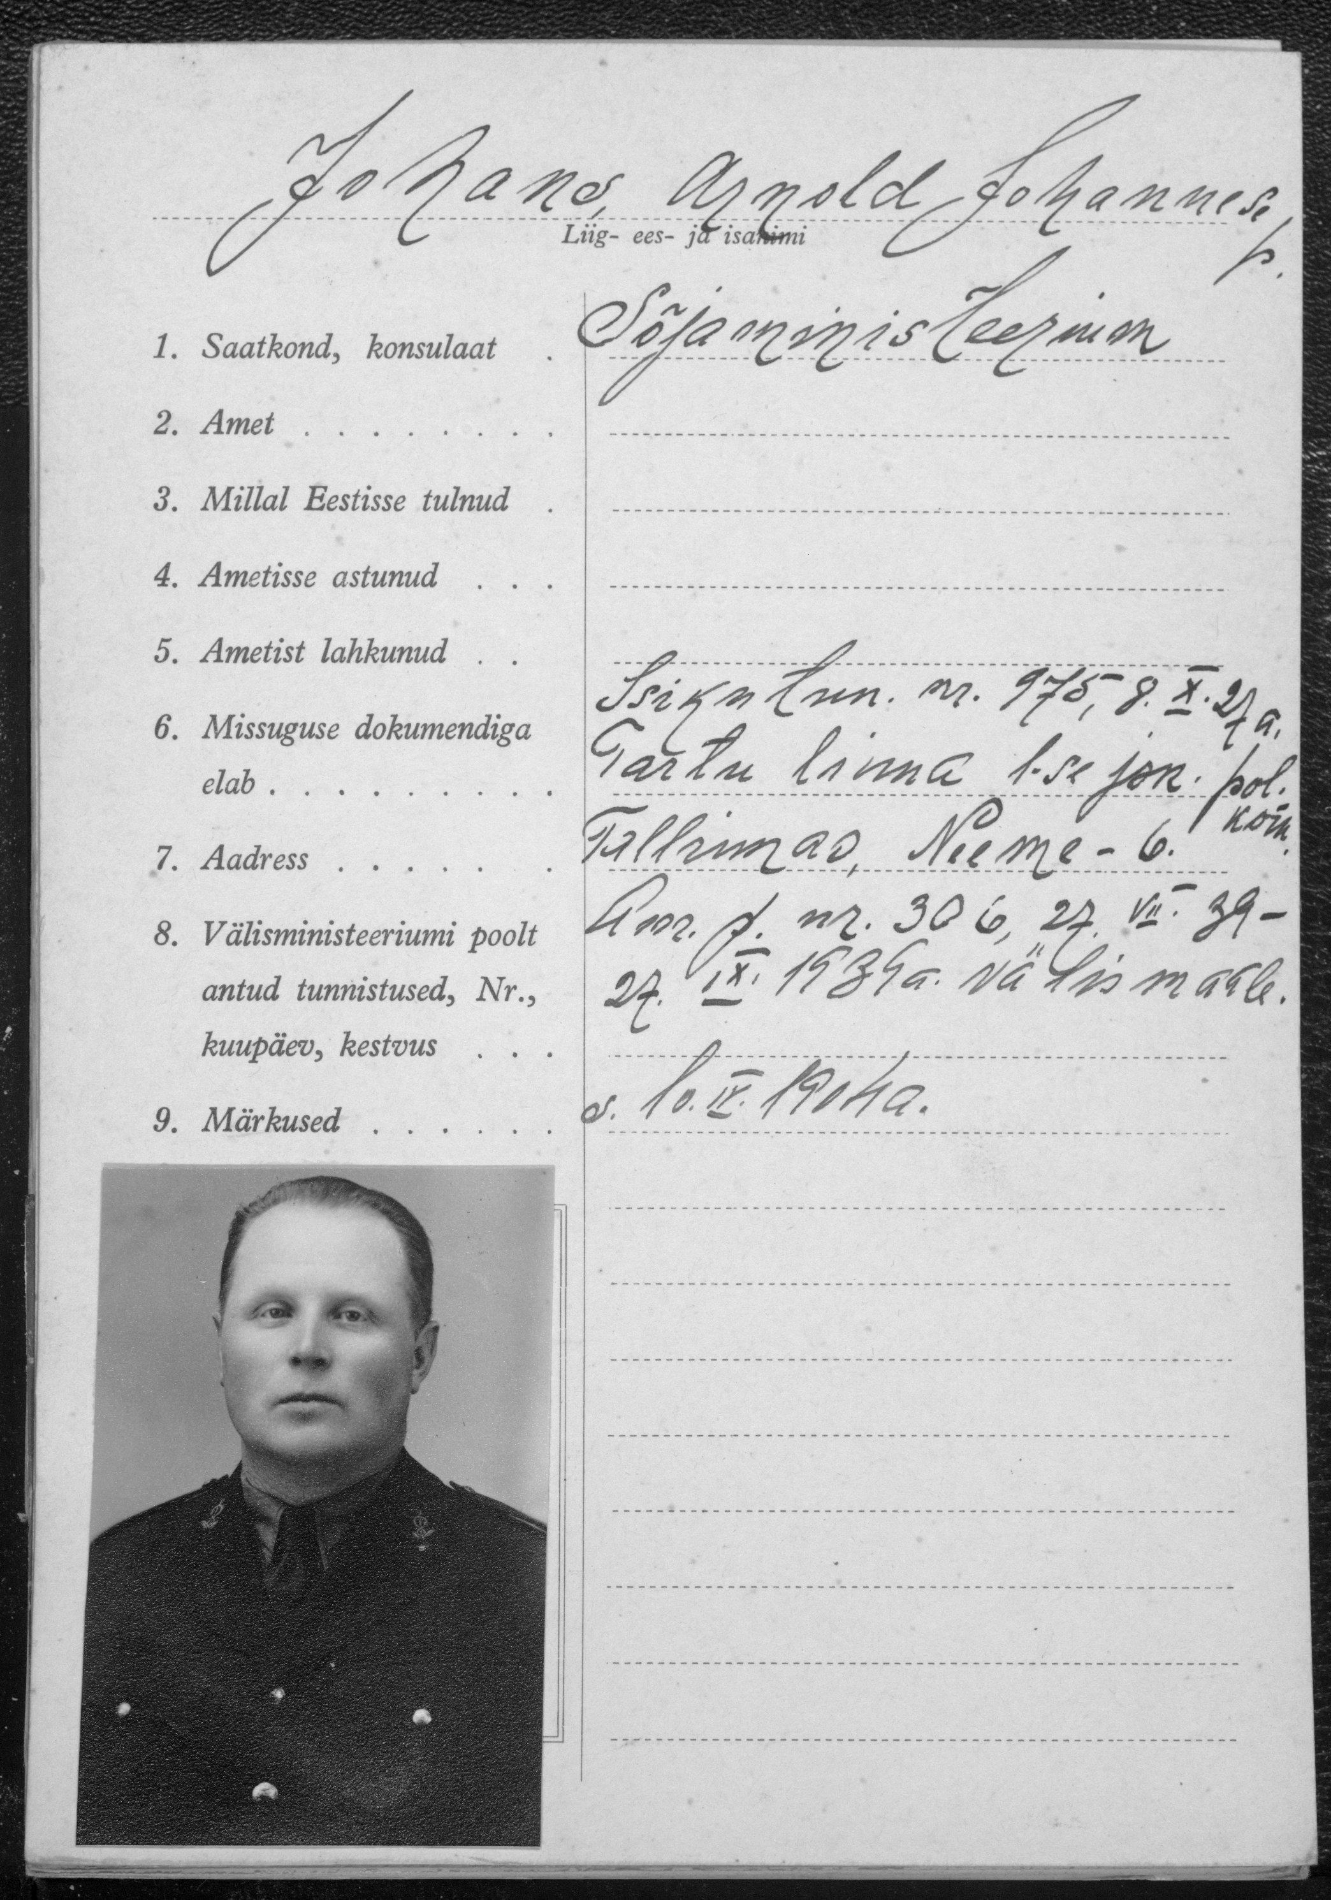 Johans, Arnold Johannese p.
Liig- ees- ja isanimi
1. Saatkond, konsulaat . Sõjaministeerium
2. Amet . . . . . . . .
3. Millal Eestisse tulnud .
4. Ametisse astunud . . .
5. Ametist lahkunud . .
6. Missuguse dokumendiga Isikutun. nr. 975, 8. X. 27 a.
elab . . . . . . . . . . Tartu linna 1-se jsk. pol. kom.
7. Aadress . . . . . . Tallinnas, Neeme - 6.
8. Välisministeeriumi poolt Am. p. nr. 306, 27. VII. 39 -
antud tunnistused, Nr., 27. IX. 1939 a. välismaale.
kuupäev, kestvus . . .
9. Märkused . . . . . . . s. 10. IX. 1904 a.